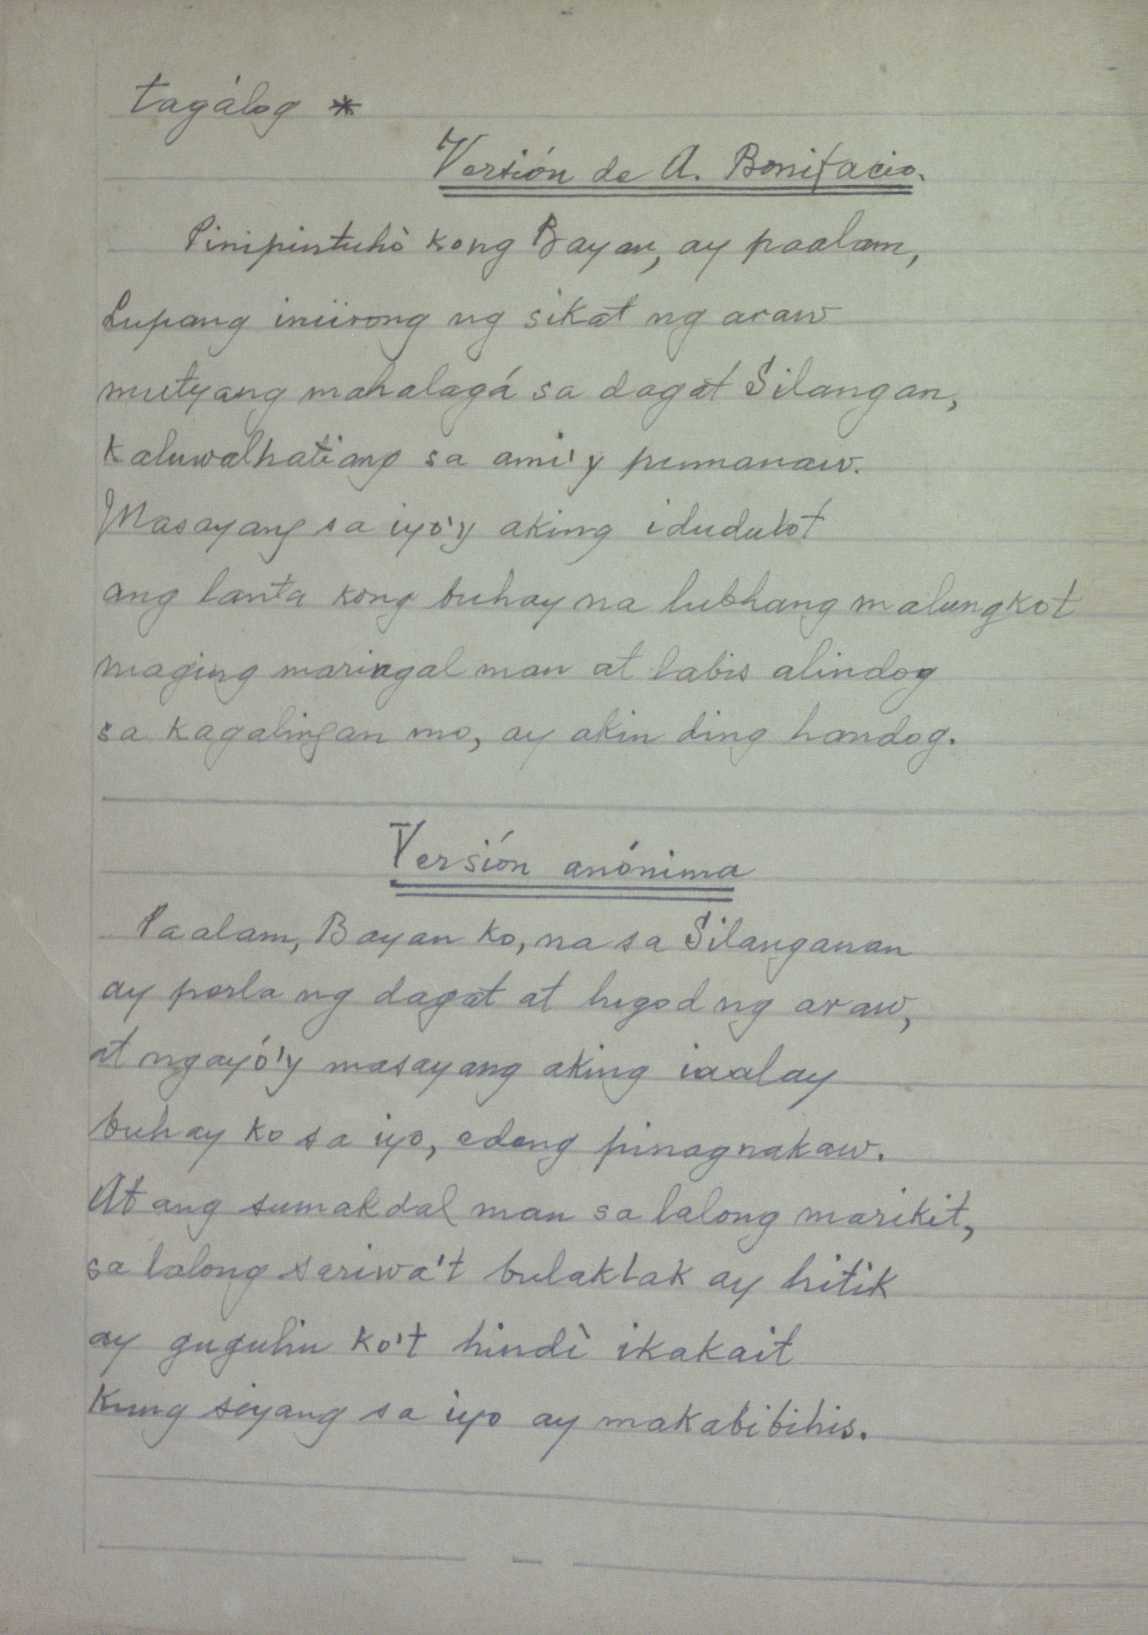 tagálog *
Versión de A. Bonifacio.
Pinipintuhò kong Bayan, ay paalam,
Lupang iniirong ng sikat ng araw
mutyang mahalagá sa dagat Silangan,
Kaluwalhatiang sa ami'y pumanaw.
Masayang sa iyo'y aking idudulot
ang lanta kong buhay na lubhang malungkot
maging maringal man at labis alindog
sa kagalingan mo, ay akin ding handog.
Versión anónima
Paalam, Bayan ko, na sa Silanganan
ay perla ng dagat at lugod ng araw,
at ngayó'y masayang aking iaalay
buhay ko sa iyo, edeng pinagnakaw.
At ang sumakdal man sa lalong marikit,
sa lalong sariwa't bulaklak ay hitik
ay guguhin ko't hindì ikakait
Kung siyang sa iyo ay makabibihis.